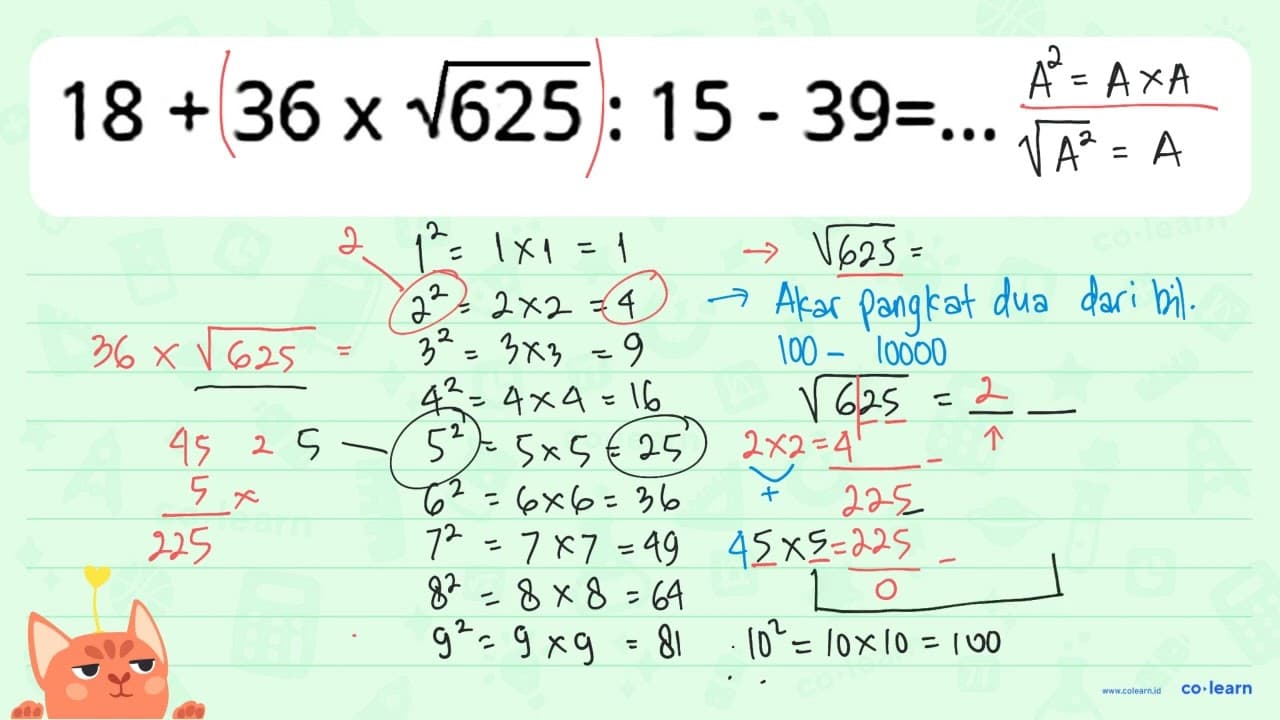 18 + (36 x √625) : 15 - 39=...
A² = A × A
√A² = A
2
1² = 1 × 1 = 1
2² = 2 × 2 = 4
3² = 3 × 3 = 9
4² = 4 × 4 = 16
5² = 5 × 5 = 25
6² = 6 × 6 = 36
7² = 7 × 7 = 49
8² = 8 × 8 = 64
9² = 9 × 9 = 81
10² = 10 × 10 = 100
36 × √625 =
45
5 ×
225
2 5
→ √625 =
→ Akar pangkat dua dari bil.
100 - 10000
√625 = 2
2 × 2 = 4 -
+
225
45 × 5 = 225 -
0
www.colearn.id
co·learn